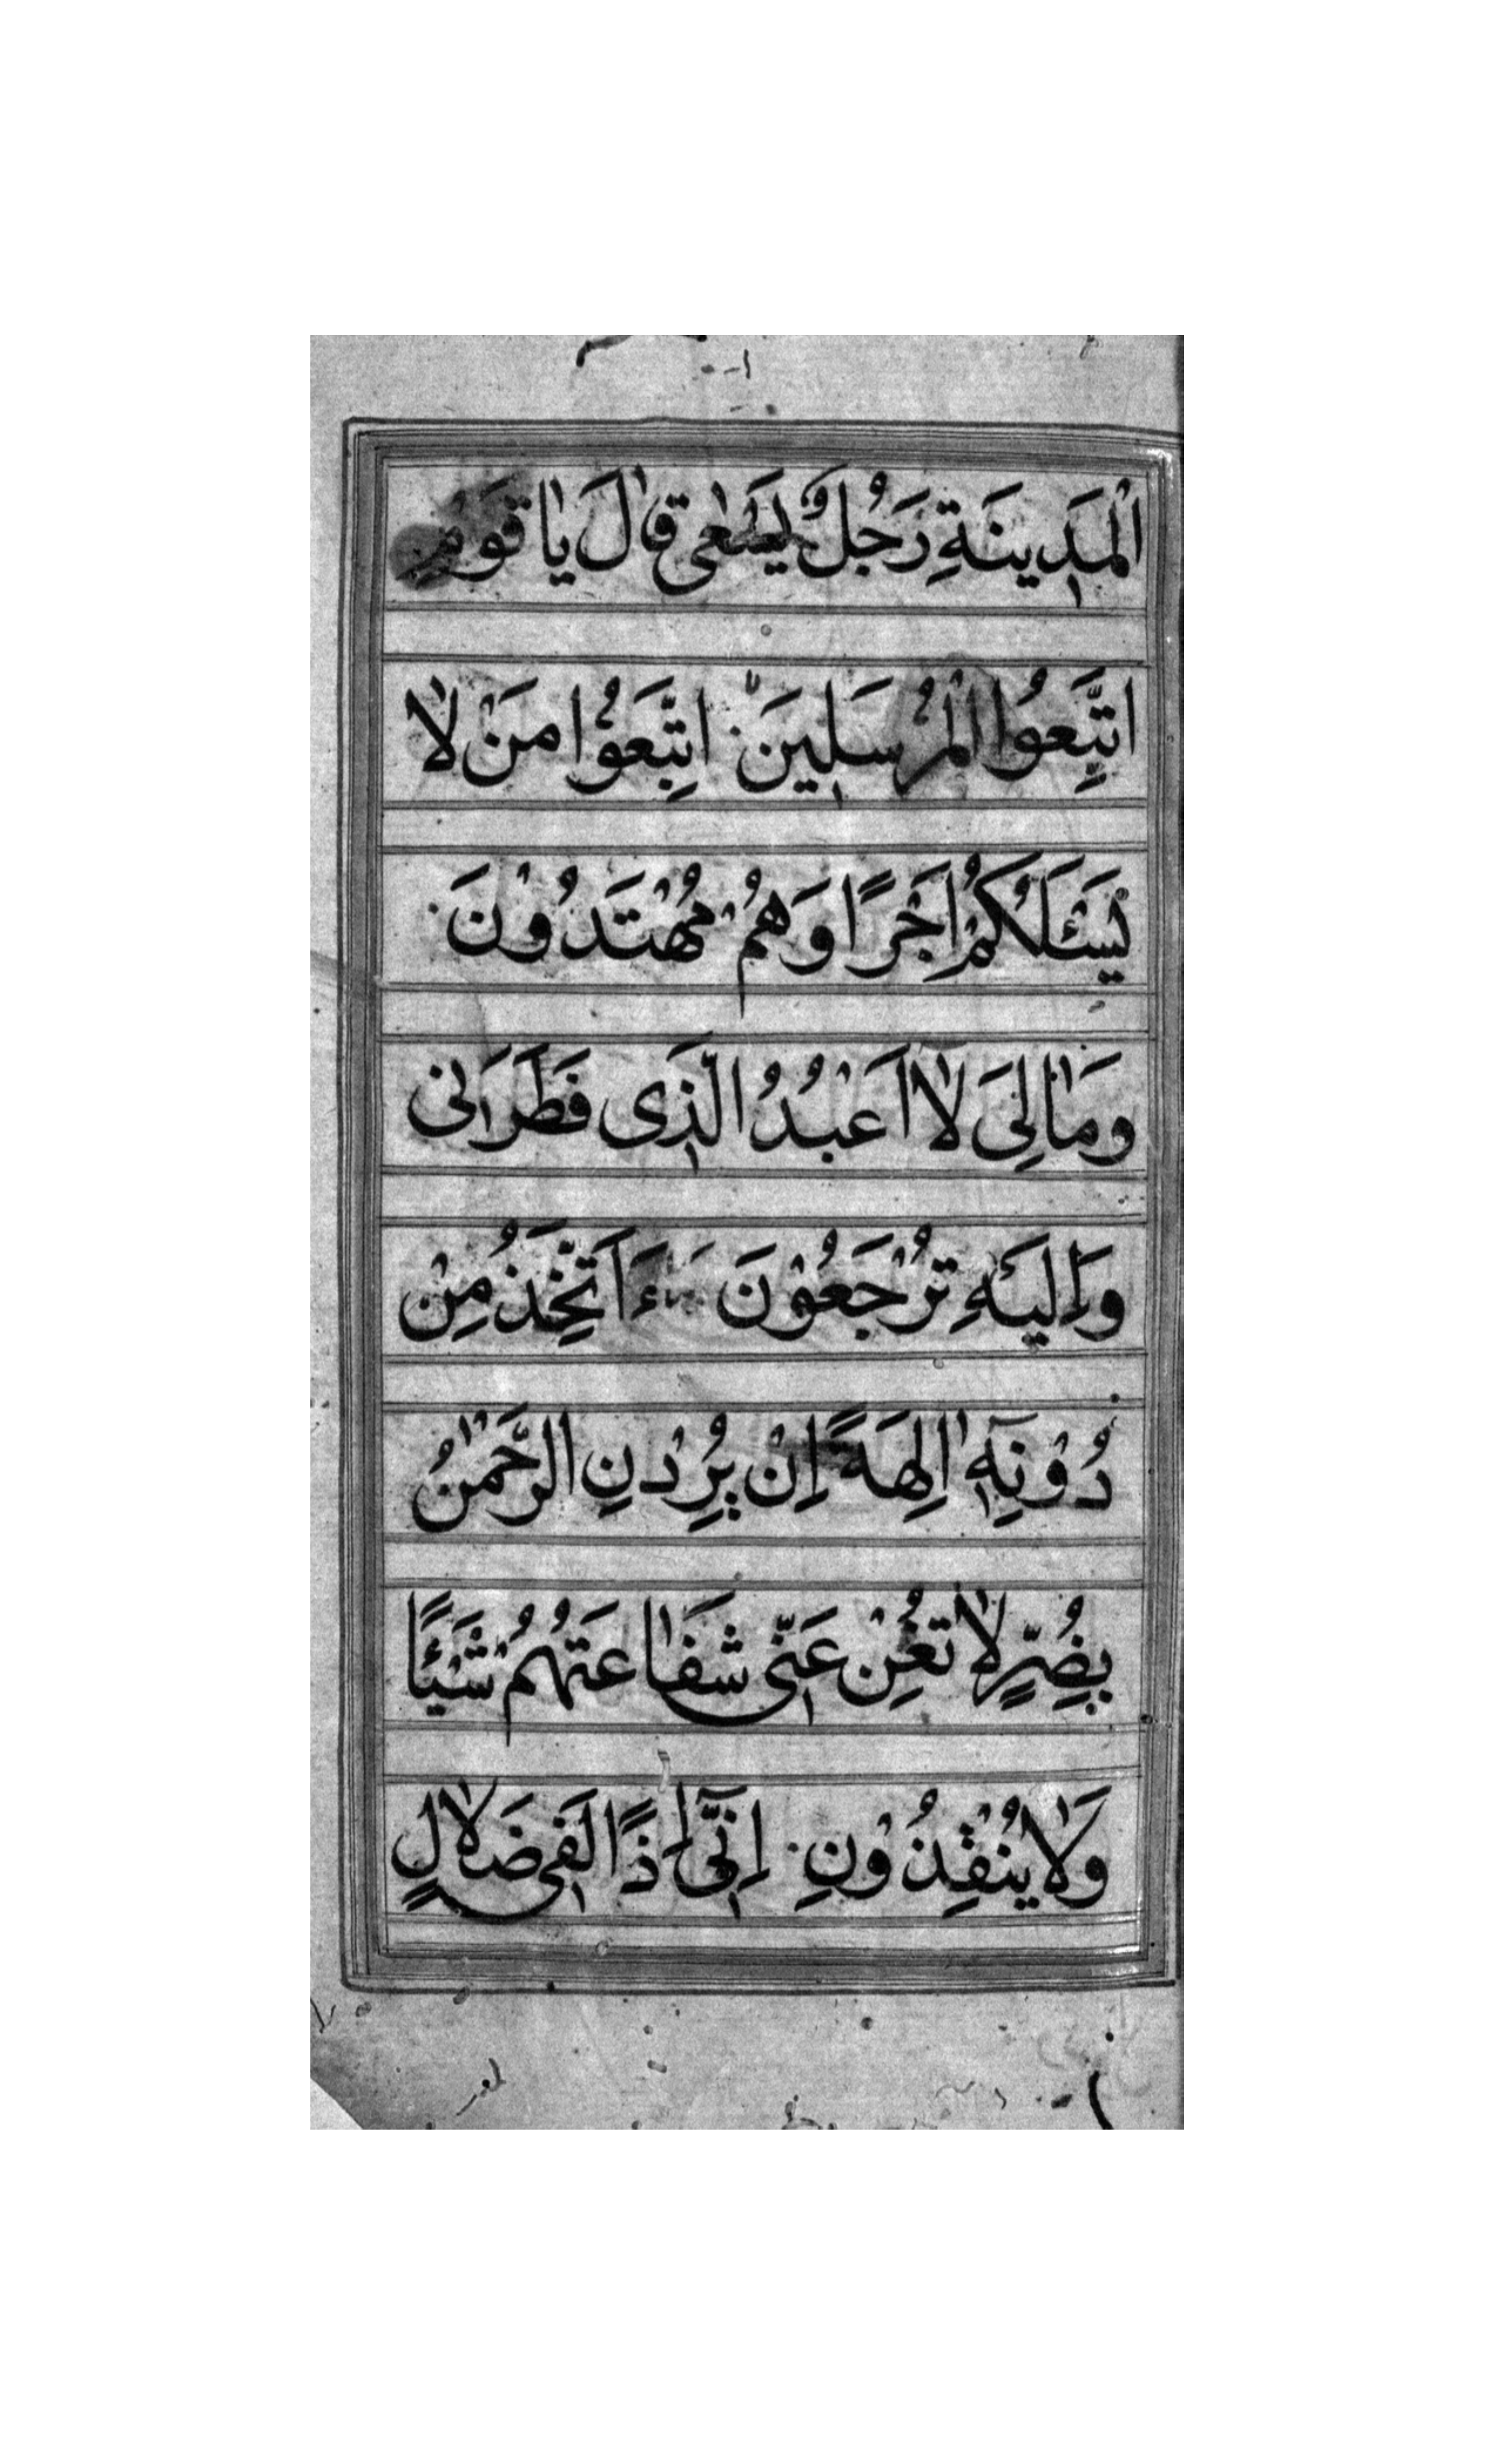 الْمَدِينَةِ رَجُلٌ يَسْعٰى قٰالَ يٰا قَوْمِ
اتَّبِعُوا الْمُرْسَلِينَ اتَّبِعُوْا مَنْ لٰا
يَسْئَلُكُمْ اَجْرًا وَهُمْ مُهْتَدُوْنَ
وَمٰالِىَ لٰا اَعْبُدُ الَّذِى فَطَرَنِى
وَاِلَيْهِ تُرْجَعُوْنَ ءَاَتَّخِذُ مِنْ
دُوْنِهِ اٰلِهَةً اِنْ يُرِدْنِ الرَّحْمٰنُ
بِضُرٍّ لٰا تُغْنِ عَنِّى شَفٰاعَتُهُمْ شَيْئًا
وَلٰا يُنْقِذُوْنِ اِنِّىٓ اِذًا لَفِى ضَلٰالٍ